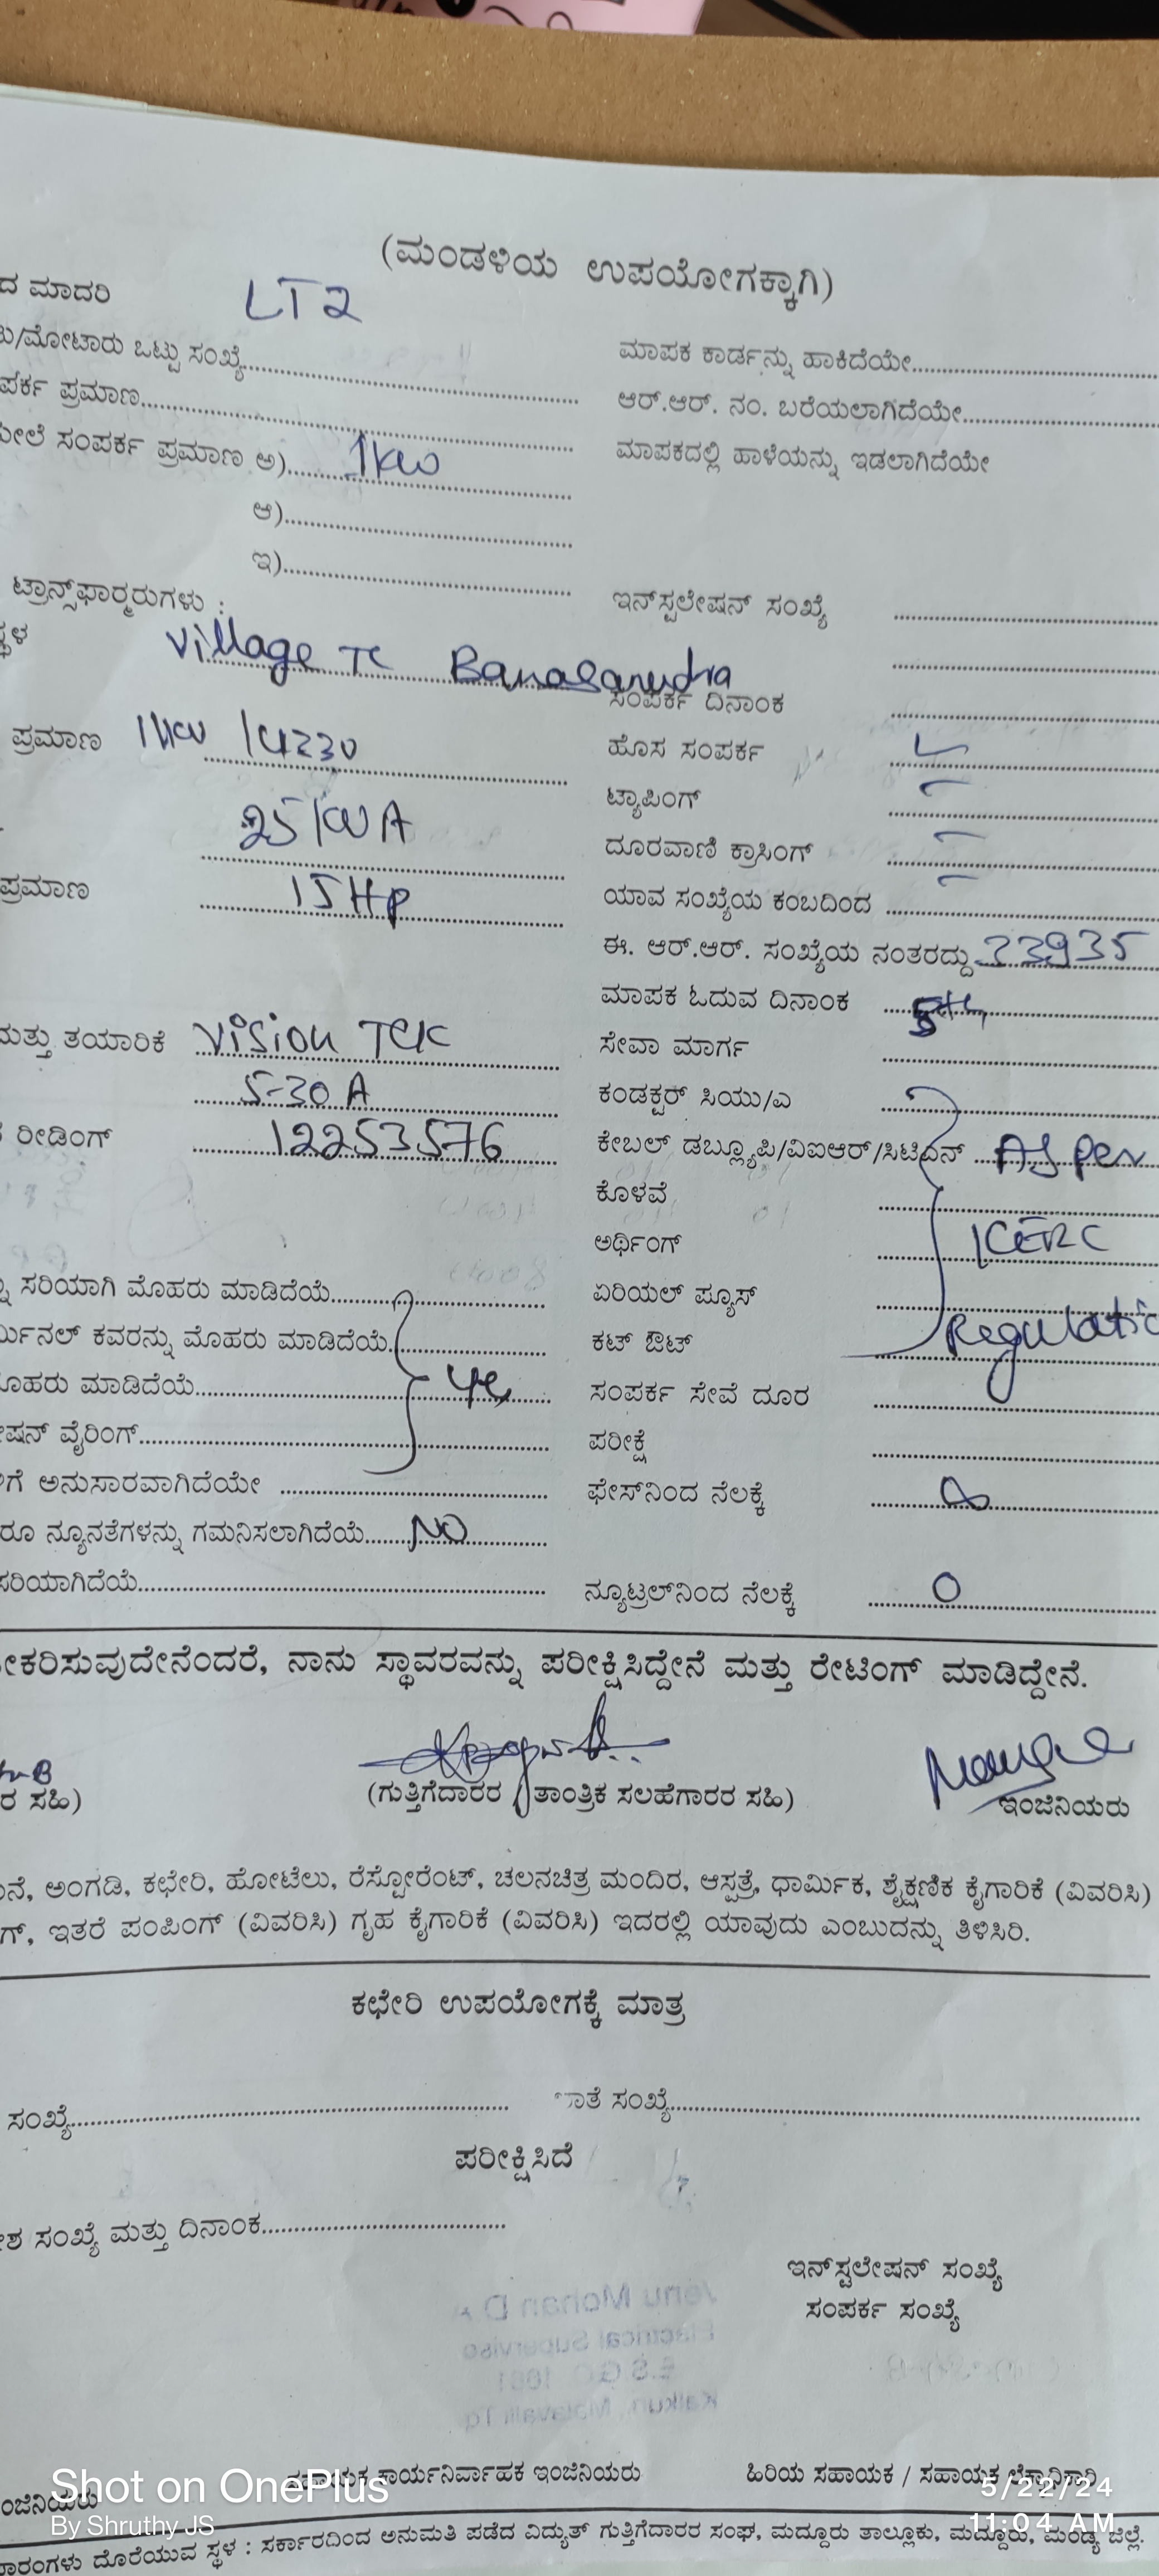 (ಮಂಡಳಿಯ ಉಪಯೋಗಕ್ಕಾಗಿ)
ದ ಮಾದರಿ LT2
/ಮೋಟಾರು ಒಟ್ಟು ಸಂಖ್ಯೆ
ಮಾಪಕ ಕಾರ್ಡನ್ನು ಹಾಕಿದೆಯೇ
ಪರ್ಕ ಪ್ರಮಾಣ
ಆರ್.ಆರ್. ನಂ. ಬರೆಯಲಾಗಿದೆಯೇ
ಮೇಲೆ ಸಂಪರ್ಕ ಪ್ರಮಾಣ ಅ) 1kw
ಮಾಪಕದಲ್ಲಿ ಹಾಳೆಯನ್ನು ಇಡಲಾಗಿದೆಯೇ
ಆ)
ಇ)
ಟ್ರಾನ್ಸ್‌ಫಾರ್‍ಮರುಗಳು :
ಇನ್‌ಸ್ಟಲೇಷನ್ ಸಂಖ್ಯೆ
ಸ್ಥಳ Village TC Banasandra
ಸಂಪರ್ಕ ದಿನಾಂಕ
ಪ್ರಮಾಣ 11kw
ಹೊಸ ಸಂಪರ್ಕ
ಟ್ಯಾಪಿಂಗ್
25
ದೂರವಾಣಿ ಕ್ರಾಸಿಂಗ್
ಪ್ರಮಾಣ 15HP
ಯಾವ ಸಂಖ್ಯೆಯ ಕಂಬದಿಂದ
ಈ. ಆರ್.ಆರ್. ಸಂಖ್ಯೆಯ ನಂತರದ್ದು 33935
ಮಾಪಕ ಓದುವ ದಿನಾಂಕ 5th
ಮತ್ತು ತಯಾರಿಕೆ Vision TEK
ಸೇವಾ ಮಾರ್ಗ
5-30 A
ಕಂಡಕ್ಟರ್ ಸಿಯು/ಎ
ರೀಡಿಂಗ್ 12253576
ಕೇಬಲ್ ಡಬ್ಲ್ಯೂಪಿ/ವಿಐಆರ್/ಸಿಟಿಎಸ್ As per
ಕೊಳವೆ
ಅರ್ಥಿಂಗ್ KERC
ನು ಸರಿಯಾಗಿ ಮೊಹರು ಮಾಡಿದೆಯೆ
ಏರಿಯಲ್ ಪ್ಯೂಸ್
ರ್ಮಿನಲ್ ಕವರನ್ನು ಮೊಹರು ಮಾಡಿದೆಯೆ
ಕಟ್ ಔಟ್ Regulatio
ಮೊಹರು ಮಾಡಿದೆಯೆ Yes
ಸಂಪರ್ಕ ಸೇವೆ ದೂರ
ಷನ್ ವೈರಿಂಗ್
ಪರೀಕ್ಷೆ
ಗೆ ಅನುಸಾರವಾಗಿದೆಯೇ
ಫೇಸ್‌ನಿಂದ ನೆಲಕ್ಕೆ ∞
ರೂ ನ್ಯೂನತೆಗಳನ್ನು ಗಮನಿಸಲಾಗಿದೆಯೆ NO
ಸರಿಯಾಗಿದೆಯೆ
ನ್ಯೂಟ್ರಲ್‌ನಿಂದ ನೆಲಕ್ಕೆ 0
ೀಕರಿಸುವುದೇನೆಂದರೆ, ನಾನು ಸ್ಥಾವರವನ್ನು ಪರೀಕ್ಷಿಸಿದ್ದೇನೆ ಮತ್ತು ರೇಟಿಂಗ್ ಮಾಡಿದ್ದೇನೆ.
ರ ಸಹಿ) (ಗುತ್ತಿಗೆದಾರರ / ತಾಂತ್ರಿಕ ಸಲಹೆಗಾರರ ಸಹಿ) ಇಂಜಿನಿಯರು
ನೆ, ಅಂಗಡಿ, ಕಛೇರಿ, ಹೋಟೆಲು, ರೆಸ್ಟೋರೆಂಟ್, ಚಲನಚಿತ್ರ ಮಂದಿರ, ಆಸ್ಪತ್ರೆ, ಧಾರ್ಮಿಕ, ಶೈಕ್ಷಣಿಕ ಕೈಗಾರಿಕೆ (ವಿವರಿಸಿ)
ಗ್, ಇತರೆ ಪಂಪಿಂಗ್ (ವಿವರಿಸಿ) ಗೃಹ ಕೈಗಾರಿಕೆ (ವಿವರಿಸಿ) ಇದರಲ್ಲಿ ಯಾವುದು ಎಂಬುದನ್ನು ತಿಳಿಸಿರಿ.
ಕಛೇರಿ ಉಪಯೋಗಕ್ಕೆ ಮಾತ್ರ
ಸಂಖ್ಯೆ ಾತೆ ಸಂಖ್ಯೆ
ಪರೀಕ್ಷಿಸಿದೆ
ಶ ಸಂಖ್ಯೆ ಮತ್ತು ದಿನಾಂಕ
ಇನ್‌ಸ್ಟಲೇಷನ್ ಸಂಖ್ಯೆ
ಸಂಪರ್ಕ ಸಂಖ್ಯೆ
ಂಜಿನಿಯರು ಸಹಾಯಕ ಕಾರ್ಯನಿರ್ವಾಹಕ ಇಂಜಿನಿಯರು ಹಿರಿಯ ಸಹಾಯಕ / ಸಹಾಯಕ ಲೆಕ್ಕಾಧಿಕಾರಿ
Shot on OnePlus
By Shruthy JS
5/22/24
11:04 AM
ಾರಂಗಳು ದೊರೆಯುವ ಸ್ಥಳ : ಸರ್ಕಾರದಿಂದ ಅನುಮತಿ ಪಡೆದ ವಿದ್ಯುತ್ ಗುತ್ತಿಗೆದಾರರ ಸಂಘ, ಮದ್ದೂರು ತಾಲ್ಲೂಕು, ಮದ್ದೂರು, ಮಂಡ್ಯ ಜಿಲ್ಲೆ.